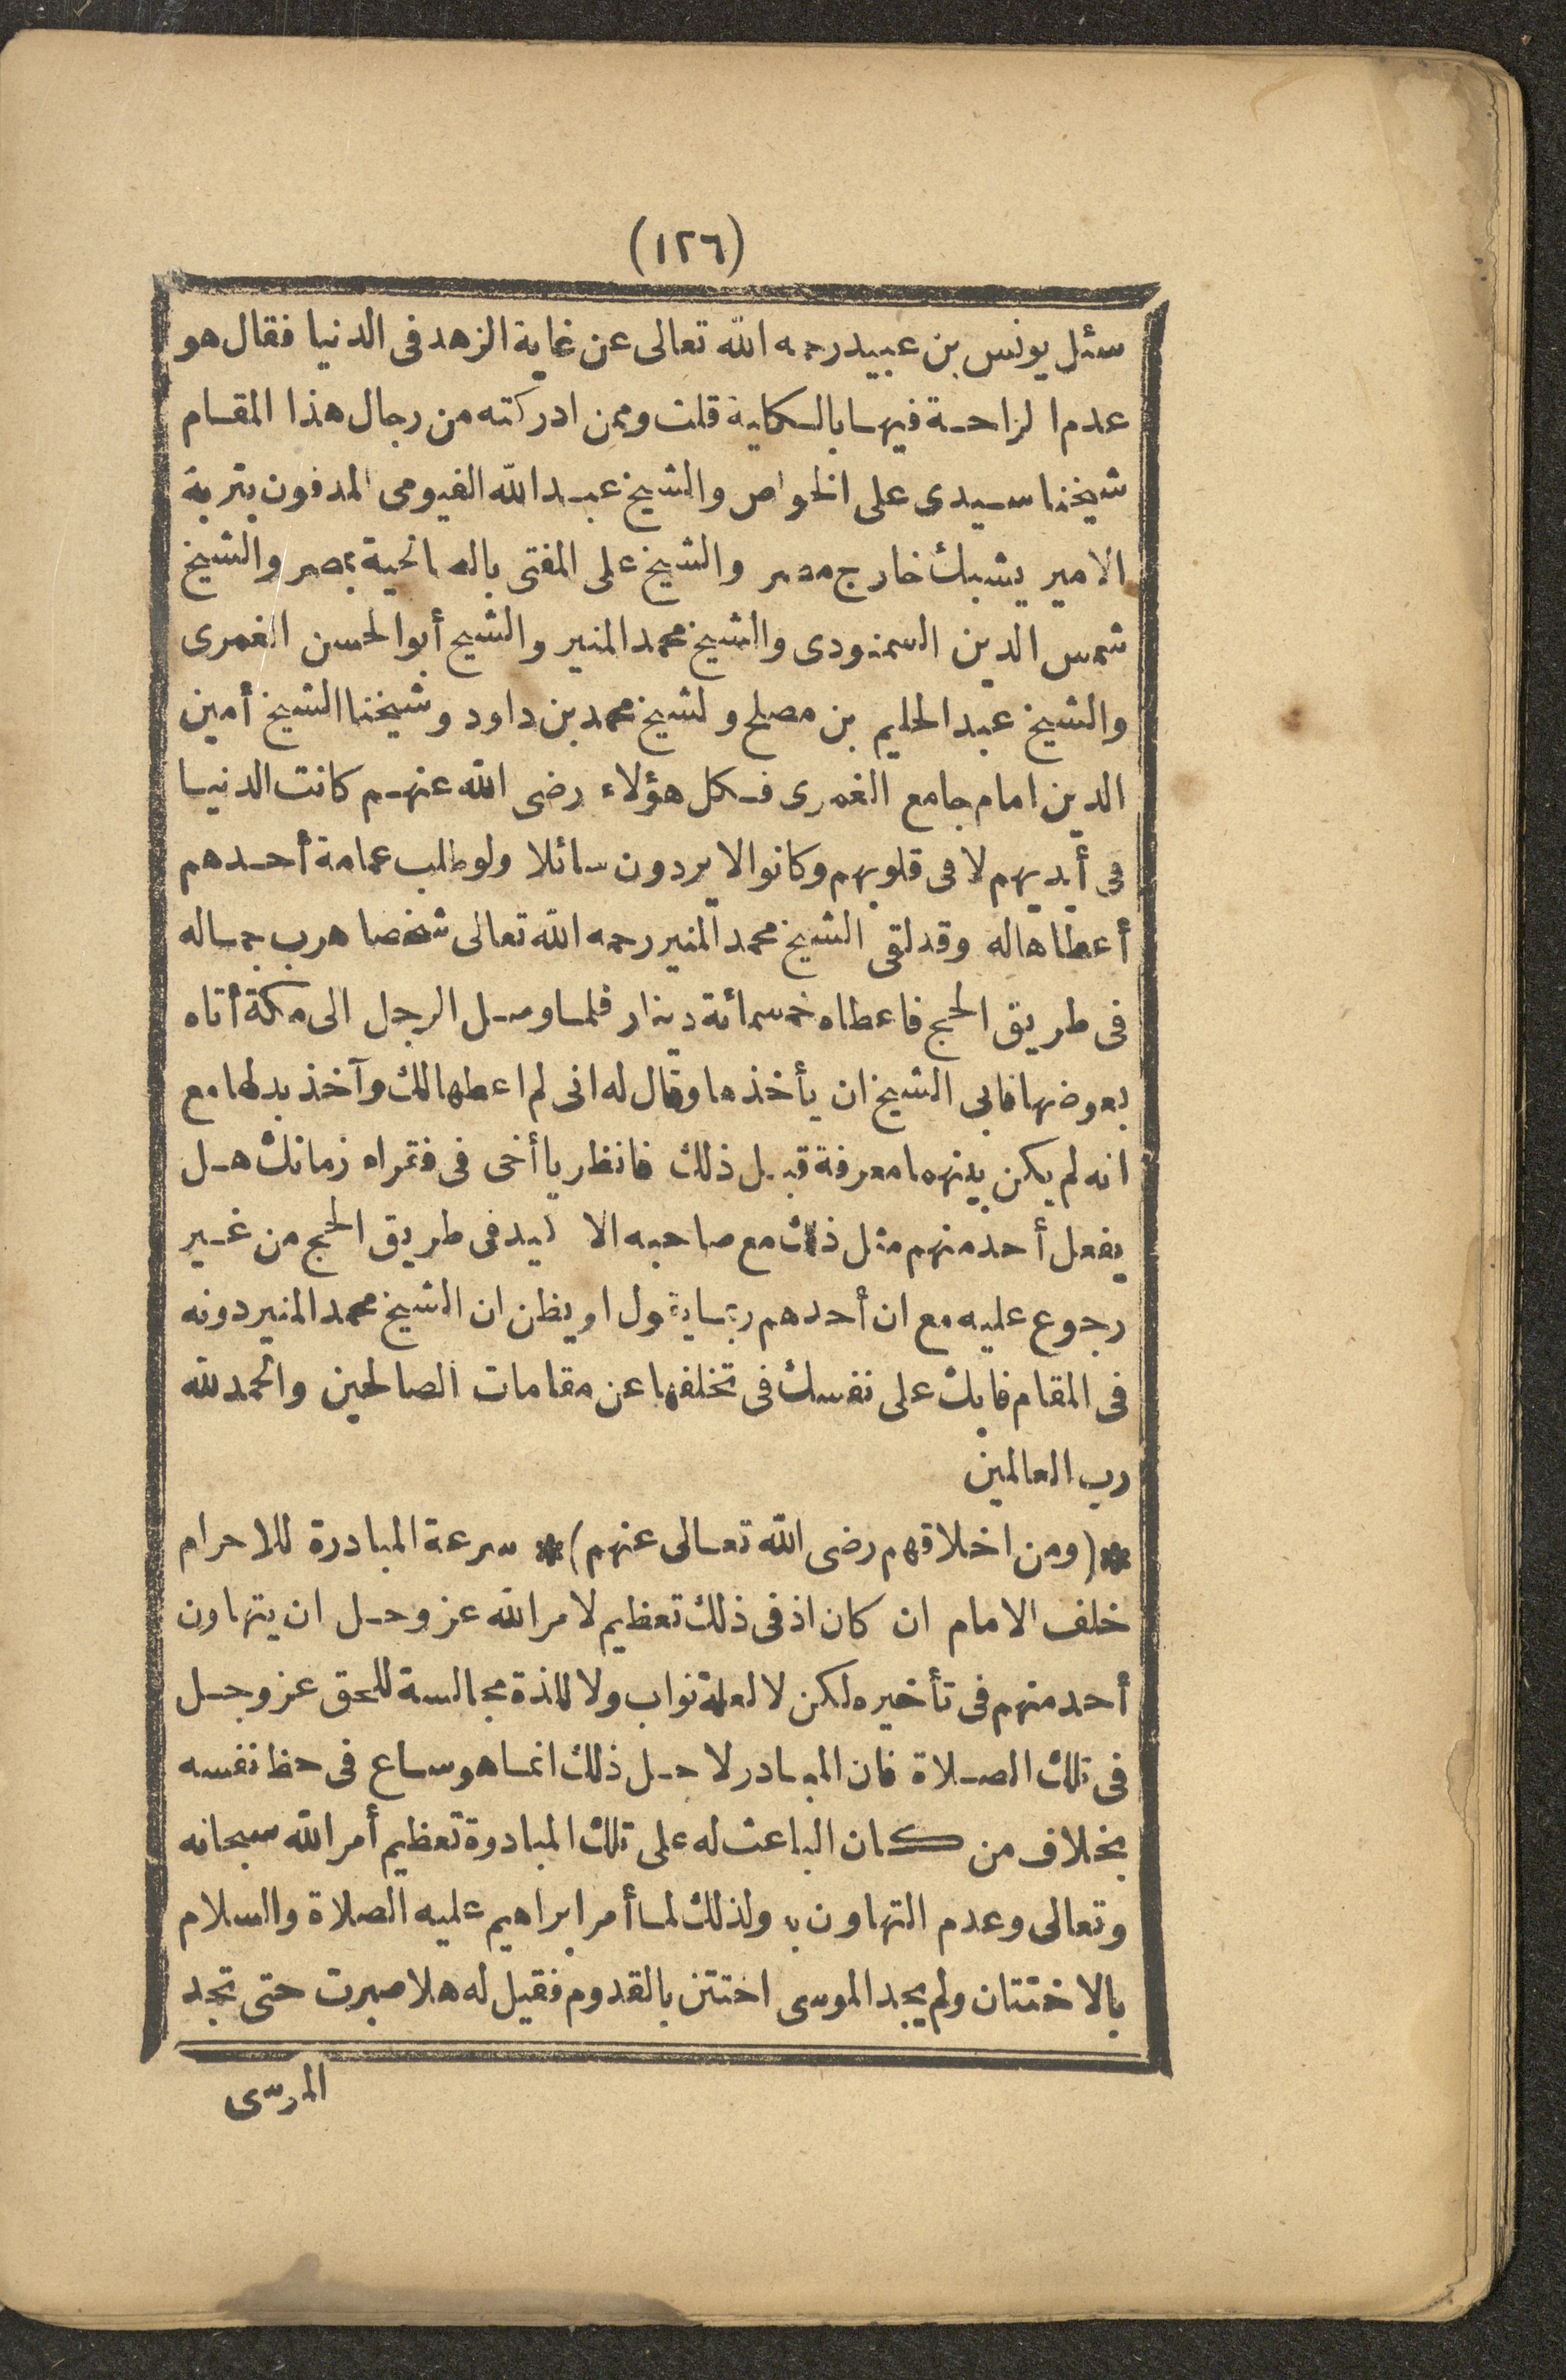 (١٢٦)
سئل يونس بن عبيد رحمه الله تعالى عن غاية الزهد فى الدنيا فقال هو
عدم الراحة فيها بالكلية قلت وممن ادركته من رجال هذا المقام
شيخنا سيدى على الخواص والشيخ عبد الله الفيومى المدفون بتربة
الامير يشبك خارج مصر والشيخ على المفتى بالصالحية بمصر والشيخ
شمس الدين السمنودى والشيخ محمد المنير والشيخ أبو الحسن الغمرى
والشيخ عبد الحليم بن مصلح ولشيخ محمد بن داود وشيخنا الشيخ أمين
الدين امام جامع الغمرى فكل هؤلاء رضى الله عنهم كانت الدنيا
فى أيديهم لا فى قلوبهم وكانوا لا يردون سائلا ولو طلب عمامة أحدهم
أعطاها له وقد لقى الشيخ محمد المنير رحمه الله تعالى شخصا هرب جماله
فى طريق الحج فاعطاه خمسمائة دينار فلما وصل الرجل الى مكة أتاه
بعوضها فابى الشيخ ان يأخذها وقال له انى لم اعطها لك وآخذ بدلها مع
انه لم يكن بينهما معرفة قبل ذلك فانظر يا أخى فى فقراء زمانك هل
يفعل أحد منهم مثل ذلك مع صاحبه الا كيد فى طريق الحج من غير
رجوع عليه مع ان أحدهم ربما يقول او يظن ان الشيخ محمد المنير دونه
فى المقام فابك على نفسك فى تخلفها عن مقامات الصالحين والحمد لله
رب العالمين
*(ومن اخلاقهم رضى الله تعالى عنهم)* سرعة المبادرة للاحرام
خلف الامام ان كان اذ فى ذلك تعظيم لامر الله عز وجل ان يتهاون
أحد منهم فى تأخيره لكن لا لعلة ثواب ولا للذة مجالسة للحق عز وجل
فى تلك الصلاة فان المبادر لاجل ذلك انما هو ساع فى حظ نفسه
بخلاف من كان الباعث له على تلك المبادوة تعظيم أمر الله سبحانه
وتعالى وعدم التهاون به ولذلك لما أمر ابراهيم عليه الصلاة والسلام
بالاختتان ولم يجد الموسى اختتن بالقدوم فقيل له هلا صبرت حتى تجد
المرسى